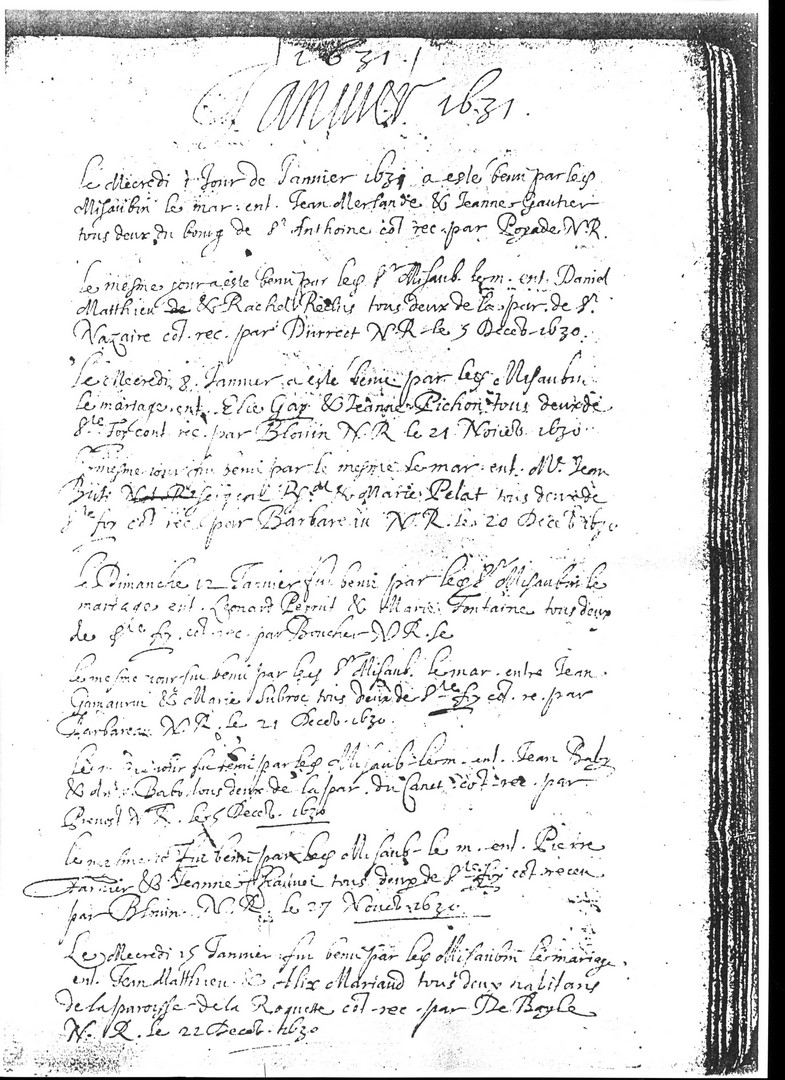 1631
Janvier 1631.
Le Mecredi 1 Jour de Janvier 1631 a esté beni par le sr
Misaubin le mar. ent. Jean Mersande & Jeanne Gautier
tous deux du bourg de St Anthoine cōt. rec. par Poyade N. R.
Le mesme jour a esté beni par le sr Misaub. le m. ent. Daniel
Matthieu de & Rachel tous deux de la par. de St
Nazaire cōt. rec. par Durrect N. R. le 5 Deceb. 1630.
Le Mecredi 8 Janvier a esté beni par le sr Misaubin
le mariage ent. Elie Gay & Jeanne Pichon tous deux de
Ste Foy cont. rec. par Blouin N. R. le 21 Noveb. 1630
mesme jour fut beni par le mesme le mar. ent. Mr Jean
& Marie Pelat tous deux de
Ste foy cōt. rec. par Barbareau N. R. le 20 Deceb. 1630
Le Dimanche 12 Janvier fut beni par le sr Misaubin le
mariage ent. Leonard & Marie Fontaine tous deux
de Ste foy cōt. rec. par Boucher N. R. le
Le mesme jour fut beni par le sr Misaub. le mar. entre Jean
& Marie Subroc tous deux de Ste foy cōt. re. par
Barbareau N. R. le 21 Deceb. 1630.
Le jour fut beni par le sr Misaub. le m. ent. Jean
& tous deux de la par. du Canet cōt. rec. par
N. R. le 5 Deceb. 1630
le mesme jo fut beni par le sr Misaub. le m. ent. Pierre
& Jeanne tous deux de Ste foy cōt. receu
par Blouin N. R. le 27 Noveb. 1630.
Le Mecredi 15 Janvier fut beni par le sr Misaubin le mariage
ent. Jean Matthieu & Alix Mariaud tous deux habitans
de la paroisse de la Roquette cōt. rec. par De Bayle
N. R. le 22 Deceb. 1630